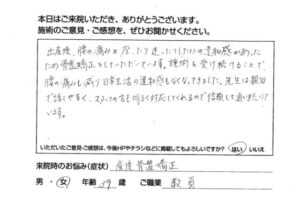 本日はご来院いただき、ありがとうございます。
施術のご意見・ご感想を、ぜひお聞かせください。
出産後、腰の痛みと座ったり走ったりしたいの違和感があった
ため骨盤矯正をしていただいています。説明も受け続けることで
腰の痛みも減り日常生活の違和感もなくなってきました。先生は親切
で話しやすく、スタッフの方も明るく対応してくれるので信頼して通い続けて
います。
いただいたご意見・ご感想は、今後HPやチラシなどに掲載してもよろしいですか? はい いいえ
来院時のお悩み(症状) 産後骨盤矯正
男・女 年齢 39 歳 ご職業 教員